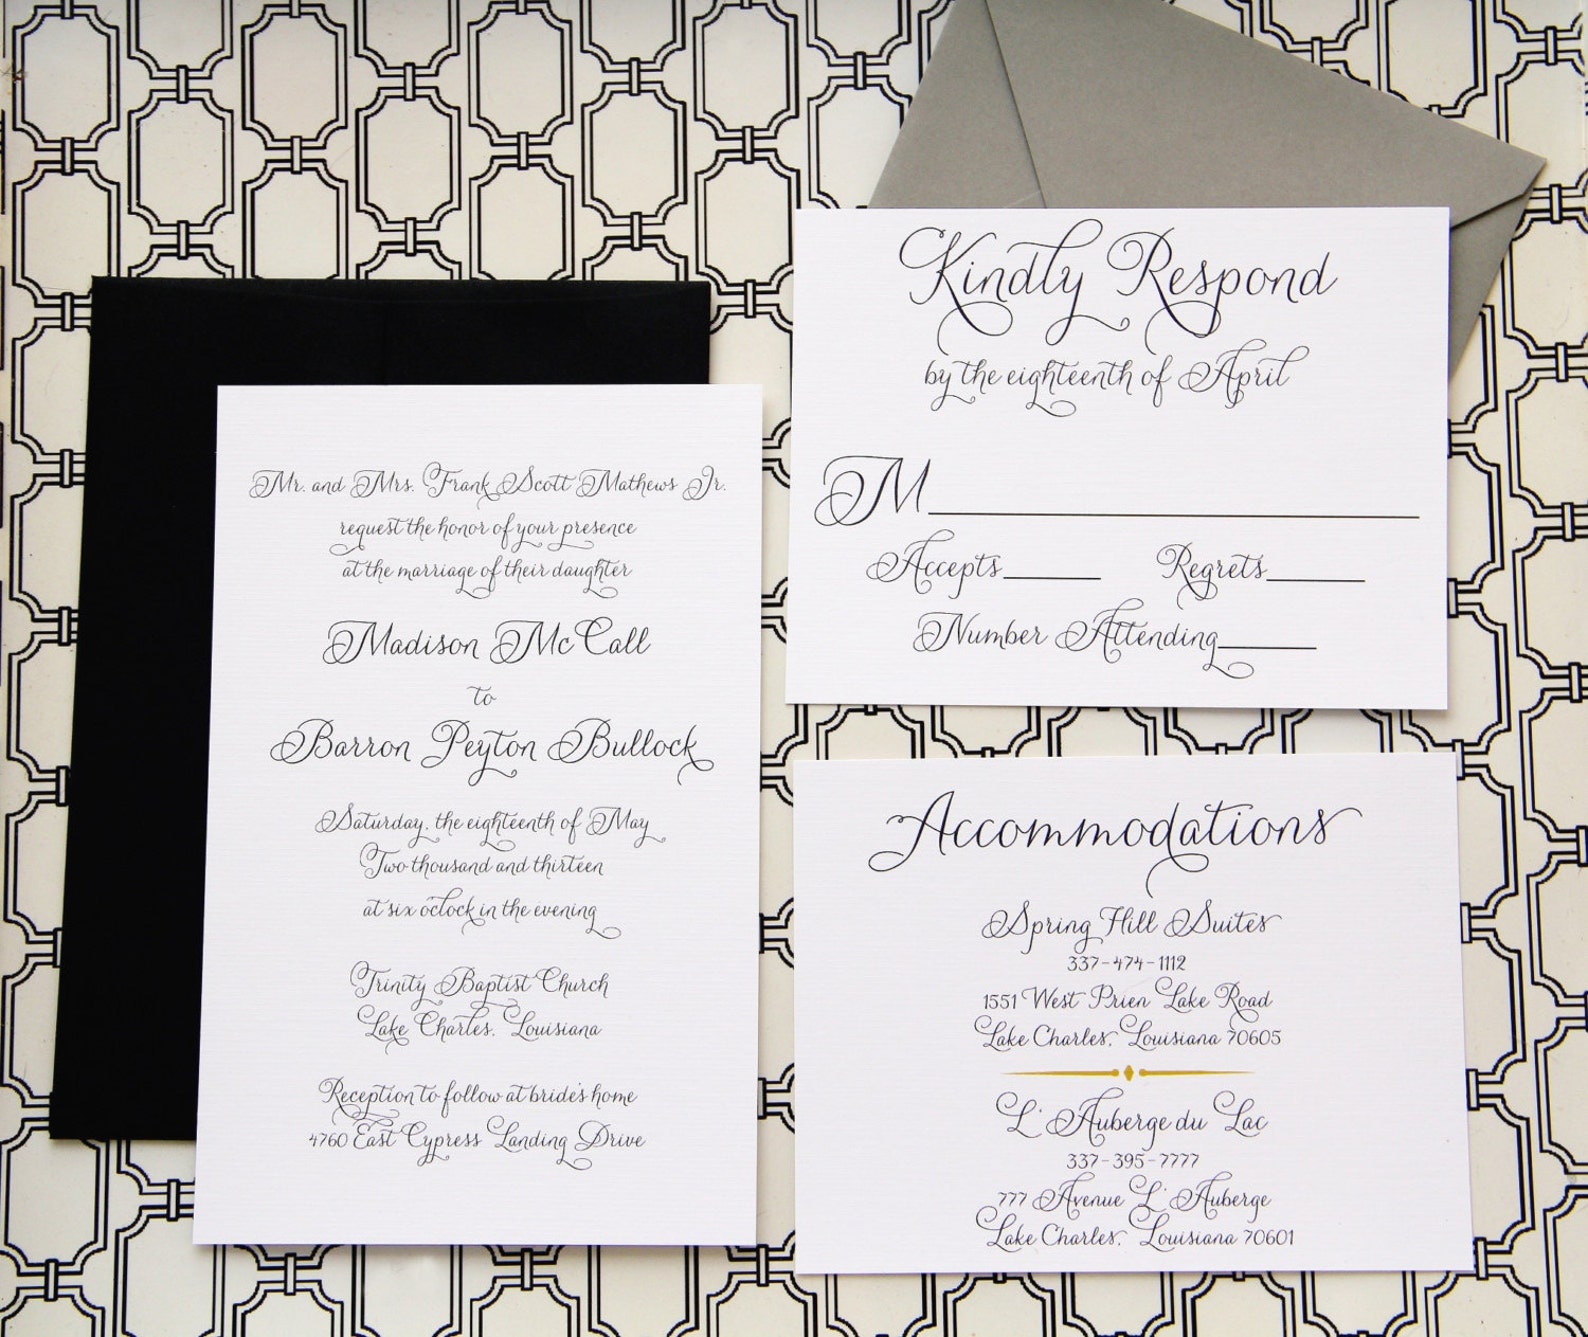 Mr. and Mrs. Frank Scott Mathews Jr.
request the honor of your presence
at the marriage of their daughter
Madison McCall
to
Barron Peyton Bullock
Saturday, the eighteenth of May
Two thousand and thirteen
at six o'clock in the evening
Trinity Baptist Church
Lake Charles, Louisiana
Reception to follow at bride's home
4760 East Cypress Landing Drive
Kindly Respond
by the eighteenth of April
M
Accepts Regrets
Number Attending
Accommodations
Spring Hill Suites
337-474-1112
1551 West Prien Lake Road
Lake Charles, Louisiana 70605
L'Auberge du Lac
337-395-7777
777 Avenue L'Auberge
Lake Charles, Louisiana 70601